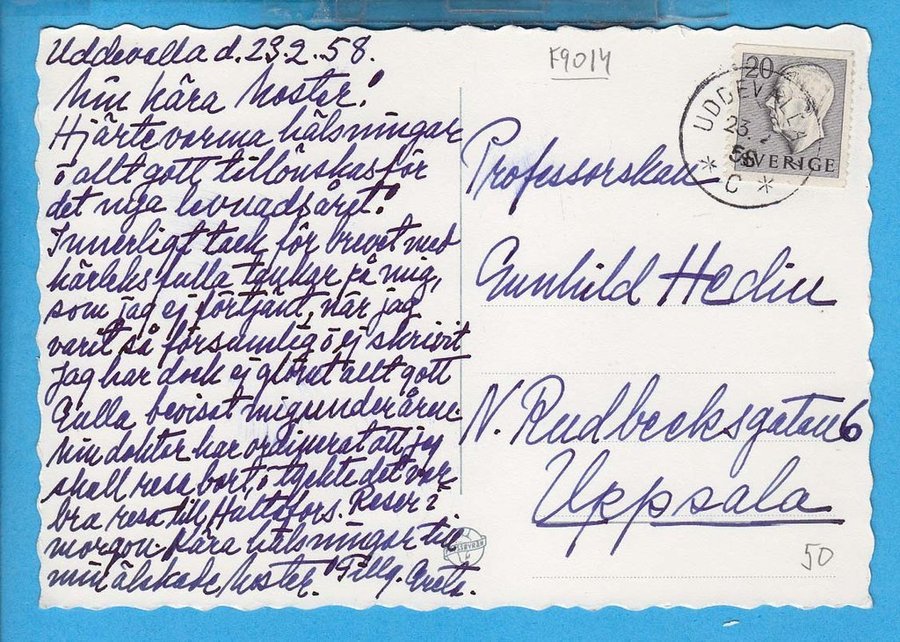 Uddevalla d. 23.2.58.
Min kära Moster!
Hjärtevarma hälsningar
o allt gott tillönskas för
det nya levnadsåret!
Innerligt tack för brevet med
kärleksfulla tankar på mig,
som jag ej förtjänt, när jag
varit så försumlig o ej skrivit
Jag har dock ej glömt allt gott
Gulla bevisat mig under åren.
Min doktor har ordinerat att jag
skall resa bort, o tyckte det var
bra resa till Hultafors. Reser i
morgon. Kära hälsningar till
min älskade Moster. Tillg. Greta.
F9014
20
UDDEVALLA
23. 2.
58
C
SVERIGE
Professorskan
Gunhild Hedin
N. Rudbecksgatan 6
Uppsala
50